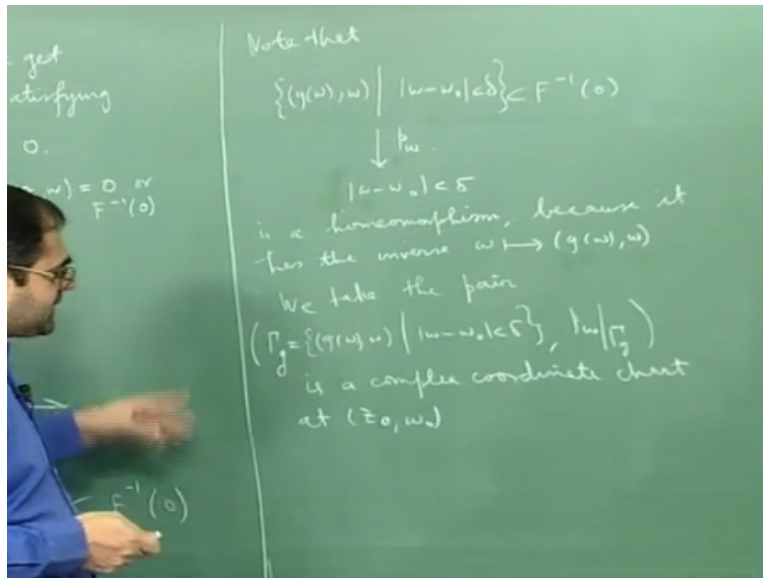 get
atisfying
0.
, w) = 0 or
F⁻¹(0)
F⁻¹(0)
Note that
{(g(w), w) | |w-w₀|<δ} ⊂ F⁻¹(0)
↓ p_w.
|w-w₀|<δ
is a homeomorphism, because it
has the inverse w ↦ (g(w), w)
We take the pair
(Γ_g = {(g(w), w) | |w-w₀|<δ}, p_w|Γ_g)
is a complex coordinate chart
at (z₀, w₀)